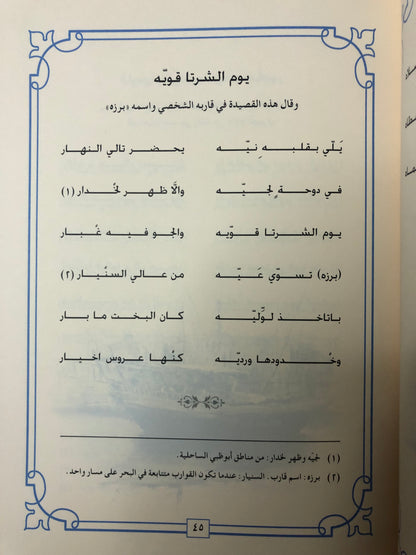 يوم الشرتا قويّه
وقال هذه القصيدة في قاربه الشخصي واسمه «برزه»
يَلّي بقلبه نِيّه يحضر تالي النهار
في دوحة لْجيّه والّا ظهر لْخدار (١)
يوم الشرتا قويّه والجو فيه غْبار
(برزه) تسوّي عَيّه من عالي السنْيار (٢)
باتاخذ لوِّليّه كان البخت ما بار
وخْدودها ورديّه كنْها عروس اخيار
(١) لْجيّه وظهر لْخدار: من مناطق أبوظبي الساحلية.
(٢) برزه: اسم قارب. السنيار: عندما تكون القوارب متتابعة في البحر على مسار واحد.
٤٥